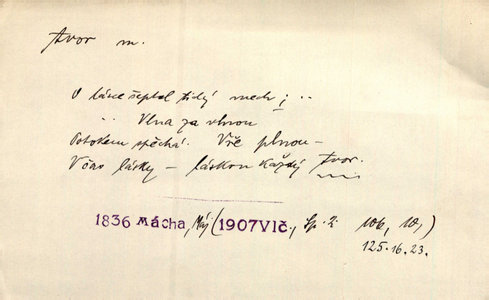 tvor m.
O lásce šeptal tichý mech; ..
.. Vlna za vlnou
Potokem spěchá. Vře plnou –
V čas lásky – láskou každý tvor.
1836 Mácha, Máj (1907 Vlč., Sp. 2 106, 10,)
125.16.23.